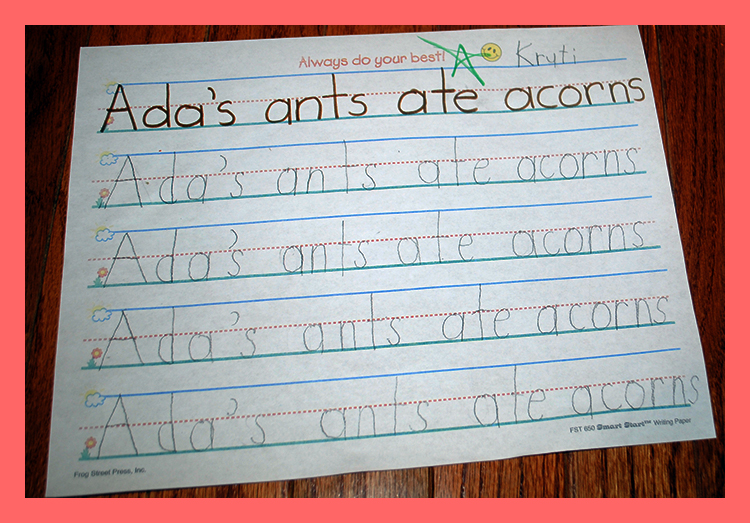 Always do your best! Kryti
Ada's ants ate acorns
Ada's ants ate acorns
Ada's ants ate acorns
Ada's ants ate acorns
Ada's ants ate acorns
Frog Street Press, Inc. FST 650 Smart Start™ Writing Paper